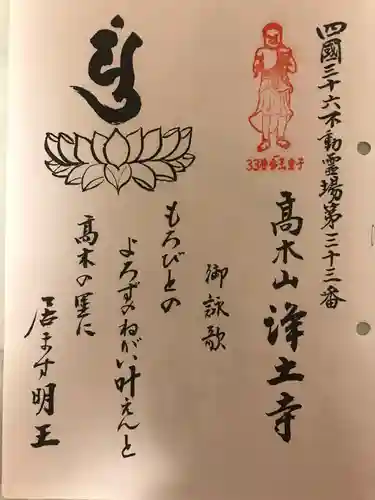 四國三十六不動霊場第三十三番
33番
童子
高木山 浄土寺
御詠歌
もろびとの
よろずのねがい叶えんと
高木の里に
居ます明王